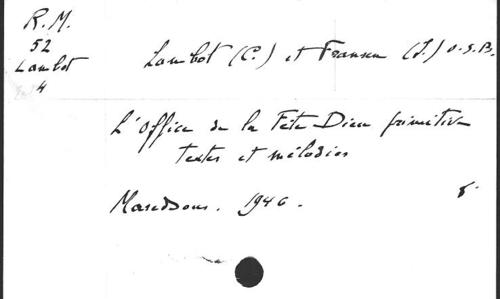 R.M.
52
Lambot
4
Lambot (C.) et Fransen (I.) o.s.B.
L'Office de la Fête Dieu primitive
textes et mélodies
Maredsous. 1946.
8°